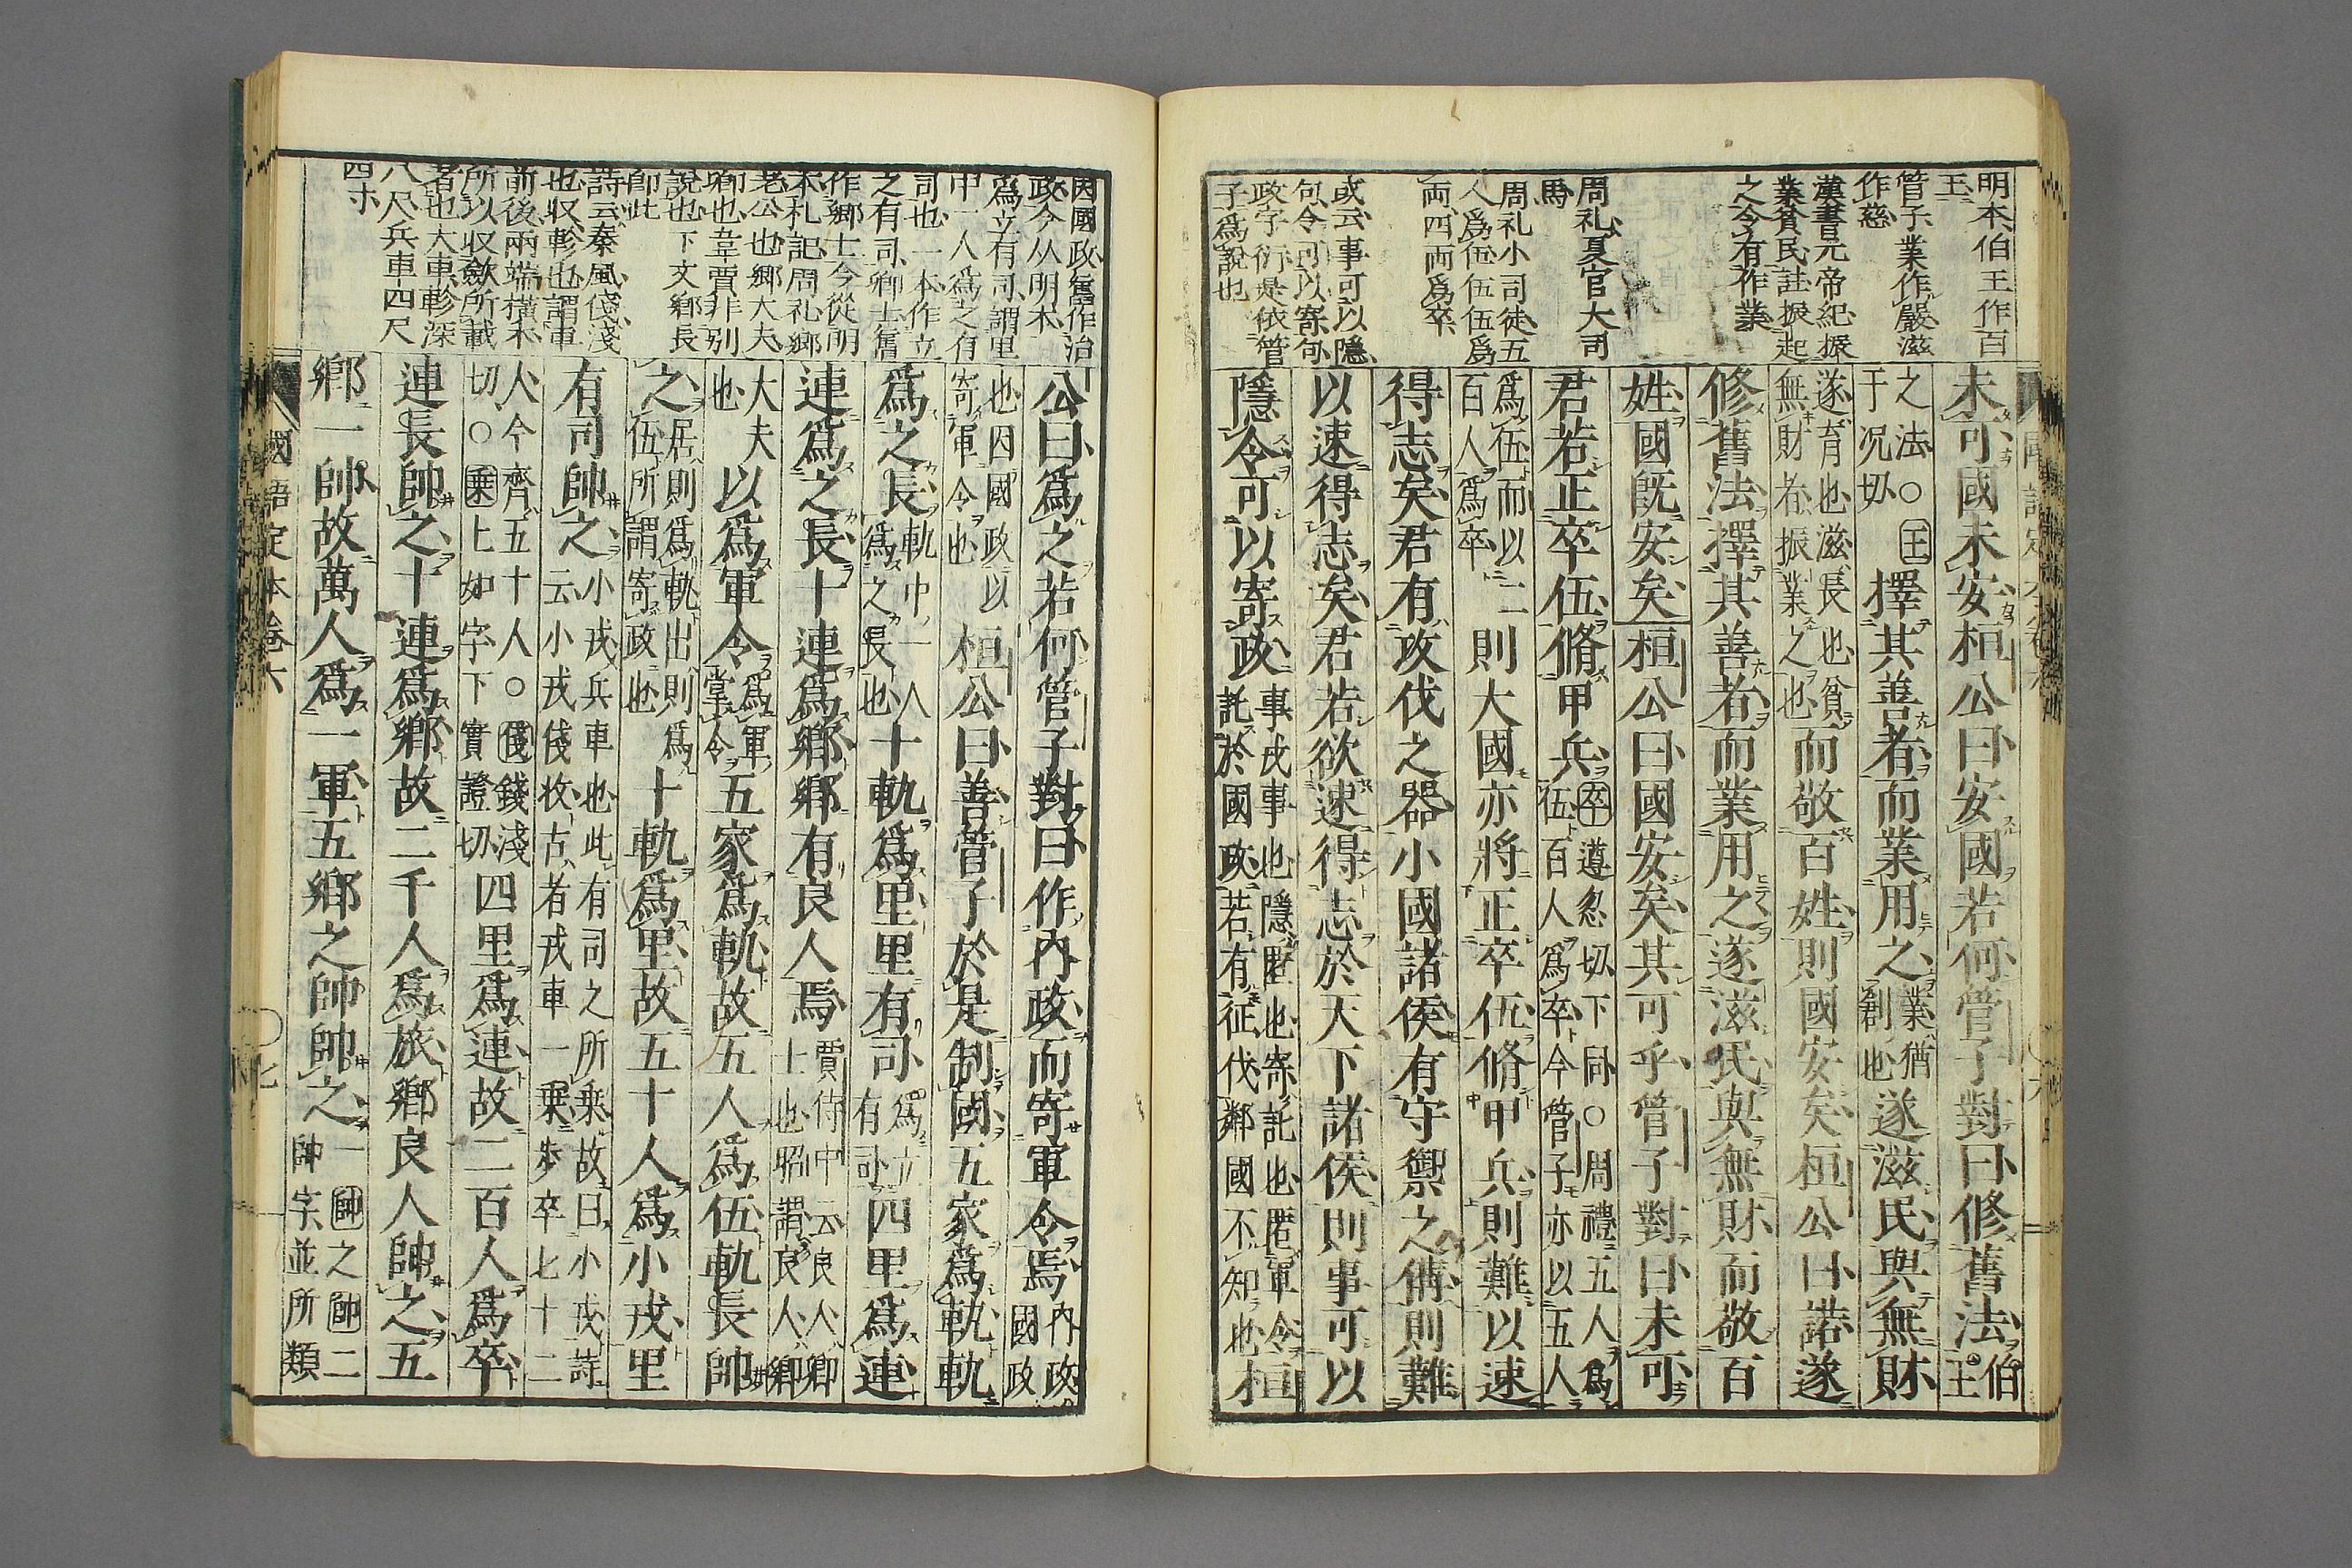 明本伯王作百
王
管子業作嚴滋
作慈
漢書元帝紀振
業貧民註振起
之令有作業
周礼夏官大司
馬
周礼小司徒五
人爲伍伍伍爲
両四両爲卒
或云事可以隱
句令可以寄句
政字衍是依管
子爲說也
未可國未安桓公曰安國若何管子對曰修舊法伯王
之法○王于況切擇其善者而業用之業猶創也遂滋民與無財
遂育也滋長也貧無財者振業之也而敬百姓則國安矣桓公曰諾遂
修舊法擇其善者而業用之遂滋民與無財而敬百
姓國既安矣桓公曰國安矣其可乎管子對曰未可
君若正卒伍脩甲兵卒遵忽切下同○周禮五人爲伍百人爲卒今管子亦以五人
爲伍而以二百人爲卒則大國亦將正卒伍脩甲兵則難以速
得志矣君有攻伐之器小國諸侯有守禦之備則難
以速得志矣君若欲速得志於天下諸侯則事可以
隱令可以寄政事戎事也隱匿也寄託也匿軍令託於國政若有征伐鄰國不知也桓
因國政舊作治
政今从明本
爲立有司謂里
中一人爲之有
司也一本作立
之有司卿士舊
作鄉士今從明
本礼記周礼鄉
老公也鄉大夫
卿也韋賈非別
說也下文鄉長
卽此
詩云秦風俴淺
也収軫也謂車
前後兩端橫木
所以収斂所載
者也大車軫深
八尺兵車四尺
四寸
公曰爲之若何管子對曰作內政而寄軍令焉內政國政
也因國政以寄軍令也桓公曰善管子於是制國五家爲軌軌
爲之長軌中一人爲之長也十軌爲里里有司爲立有司四里爲連
連爲之長十連爲鄉鄉有良人焉賈侍中云良人卿士也昭謂良人鄉
大夫也以爲軍令爲軍掌令五家爲軌故五人爲伍軌長帥
之居則爲軌出則爲伍所謂寄政也十軌爲里故五十人爲小戎里
有司帥之小戎兵車也此有司之所乘故曰小戎詩云小戎俴收古者戎車一乘步卒七十二
人今齊五十人○俴錢淺切○乘上如字下實證切四里爲連故二百人爲卒
連長帥之十連爲鄉故二千人爲旅鄉良人帥之五
鄉一帥故萬人爲一軍五鄉之帥帥之一帥之帥二帥字並所類
國語定本卷六
七